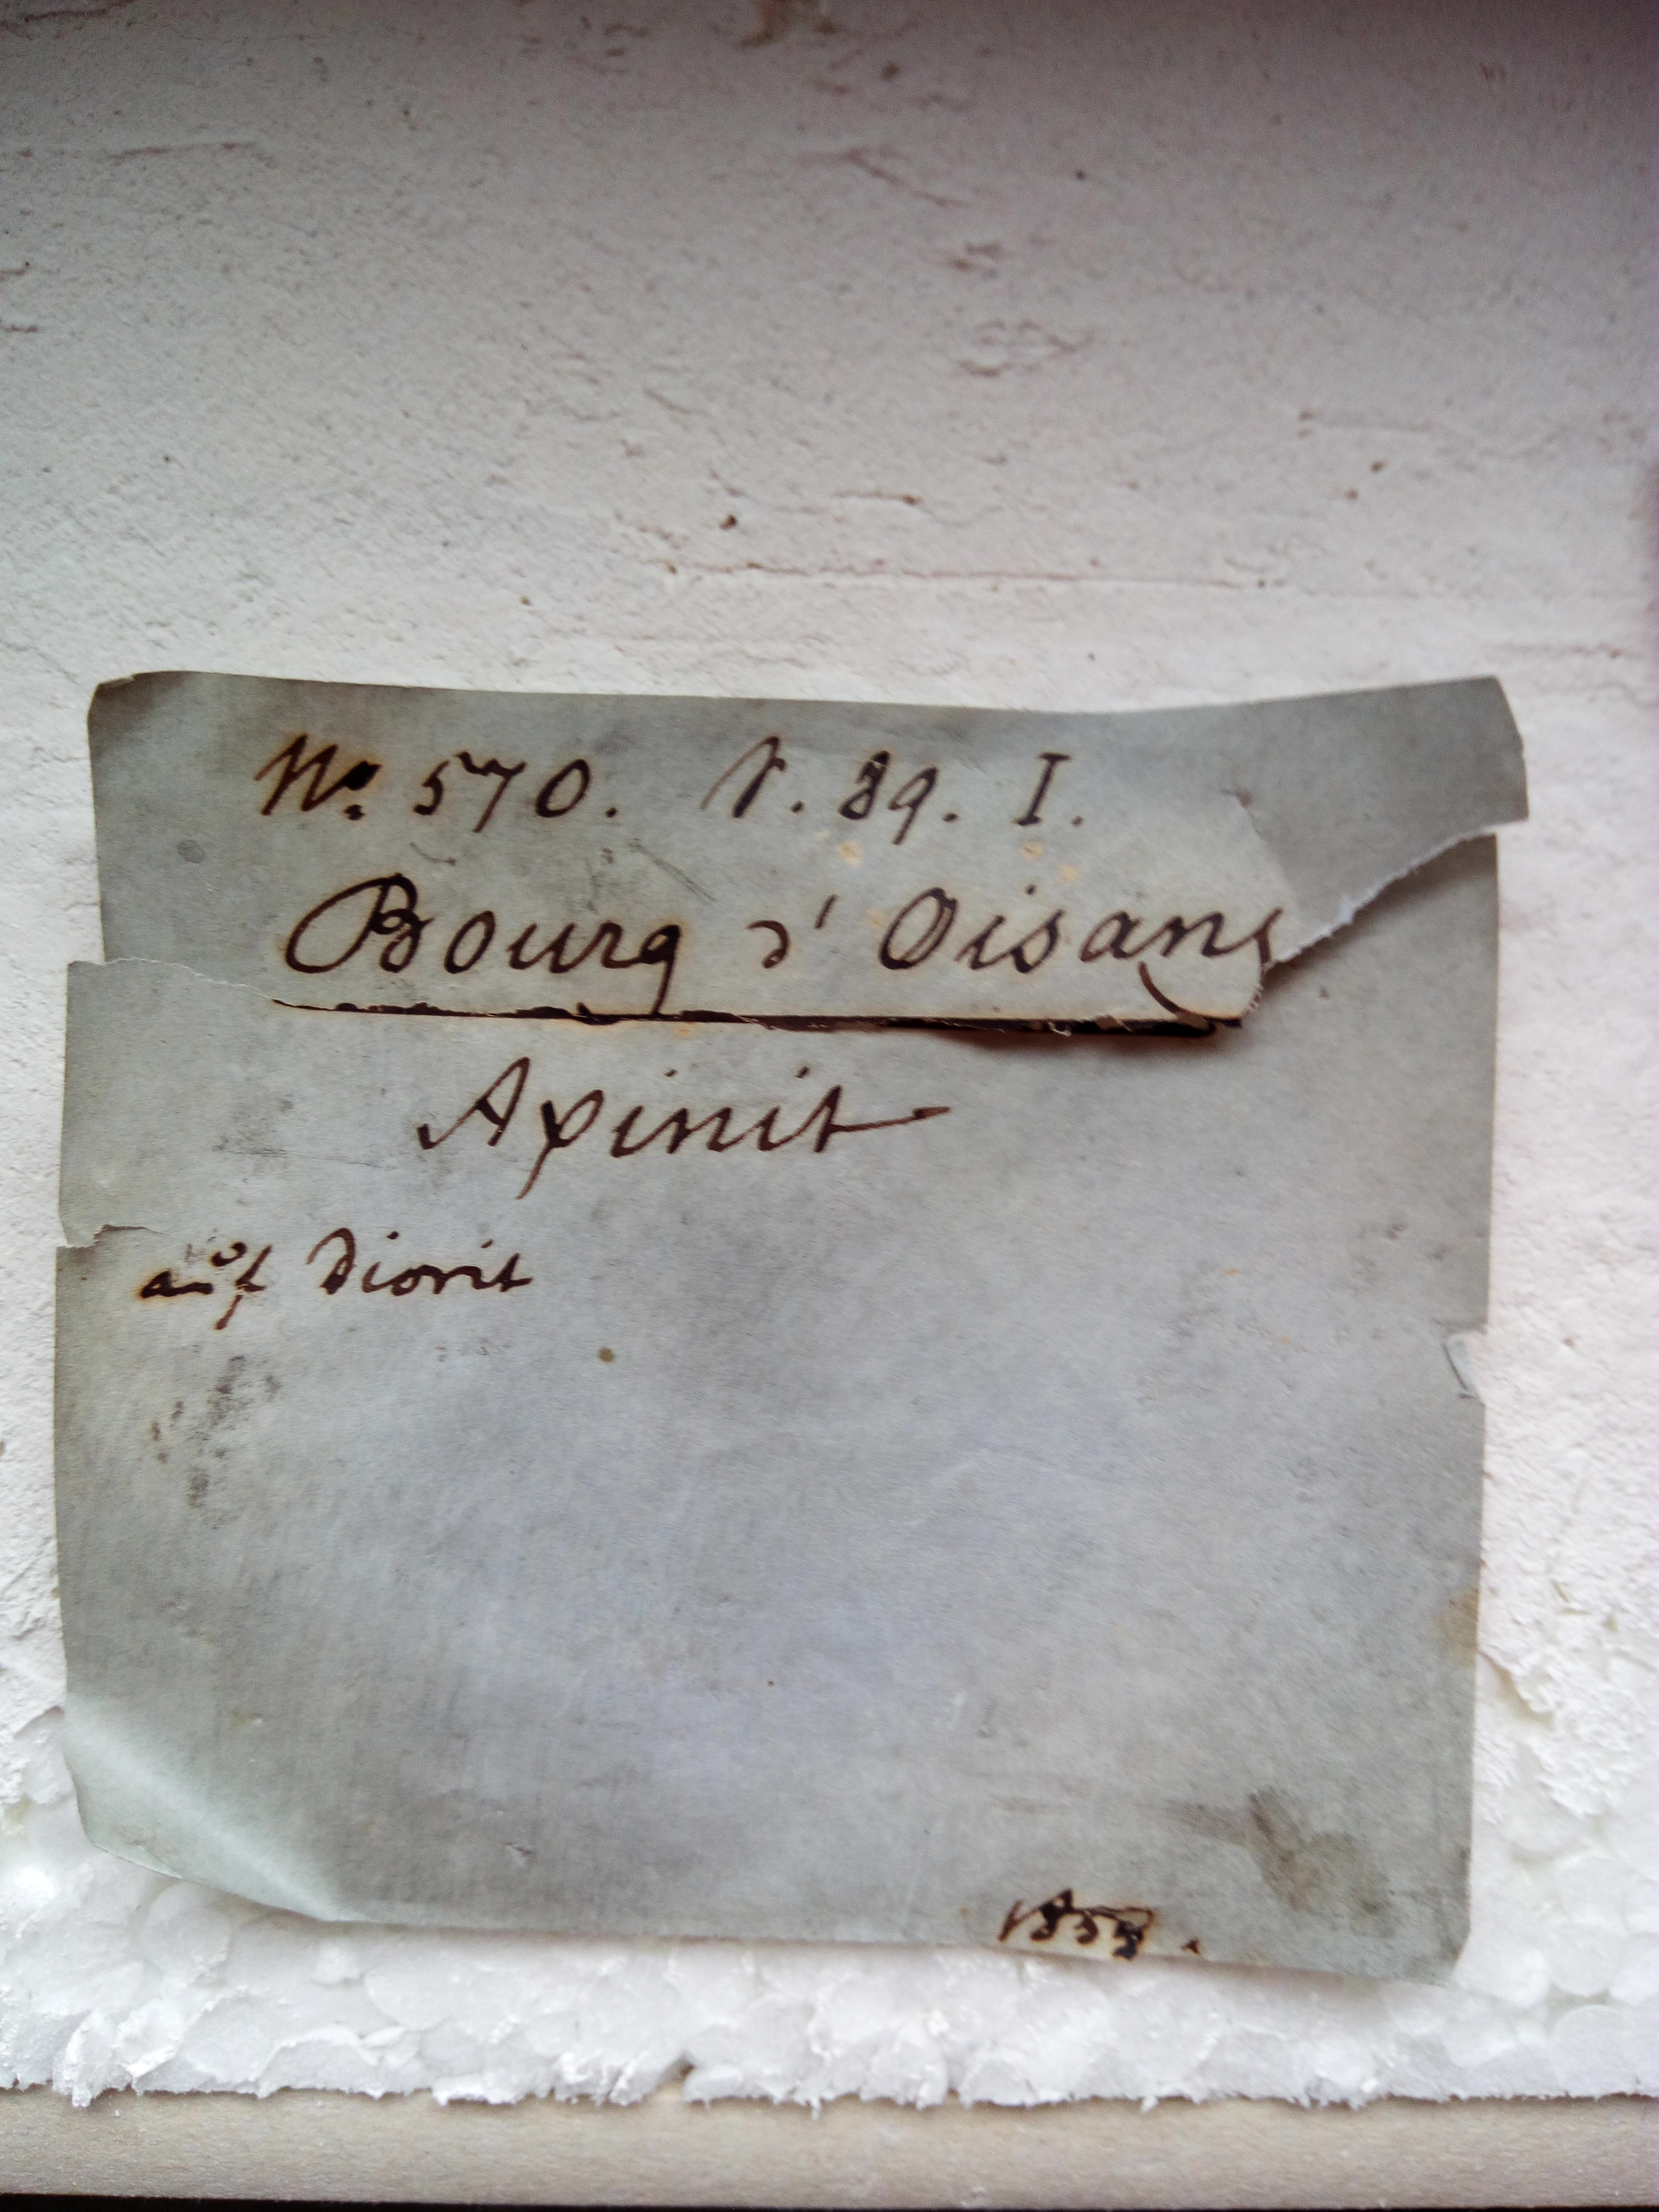 No. 570. V. 89. I.
Bourg d' Oisans
Axinit
auf Diorit